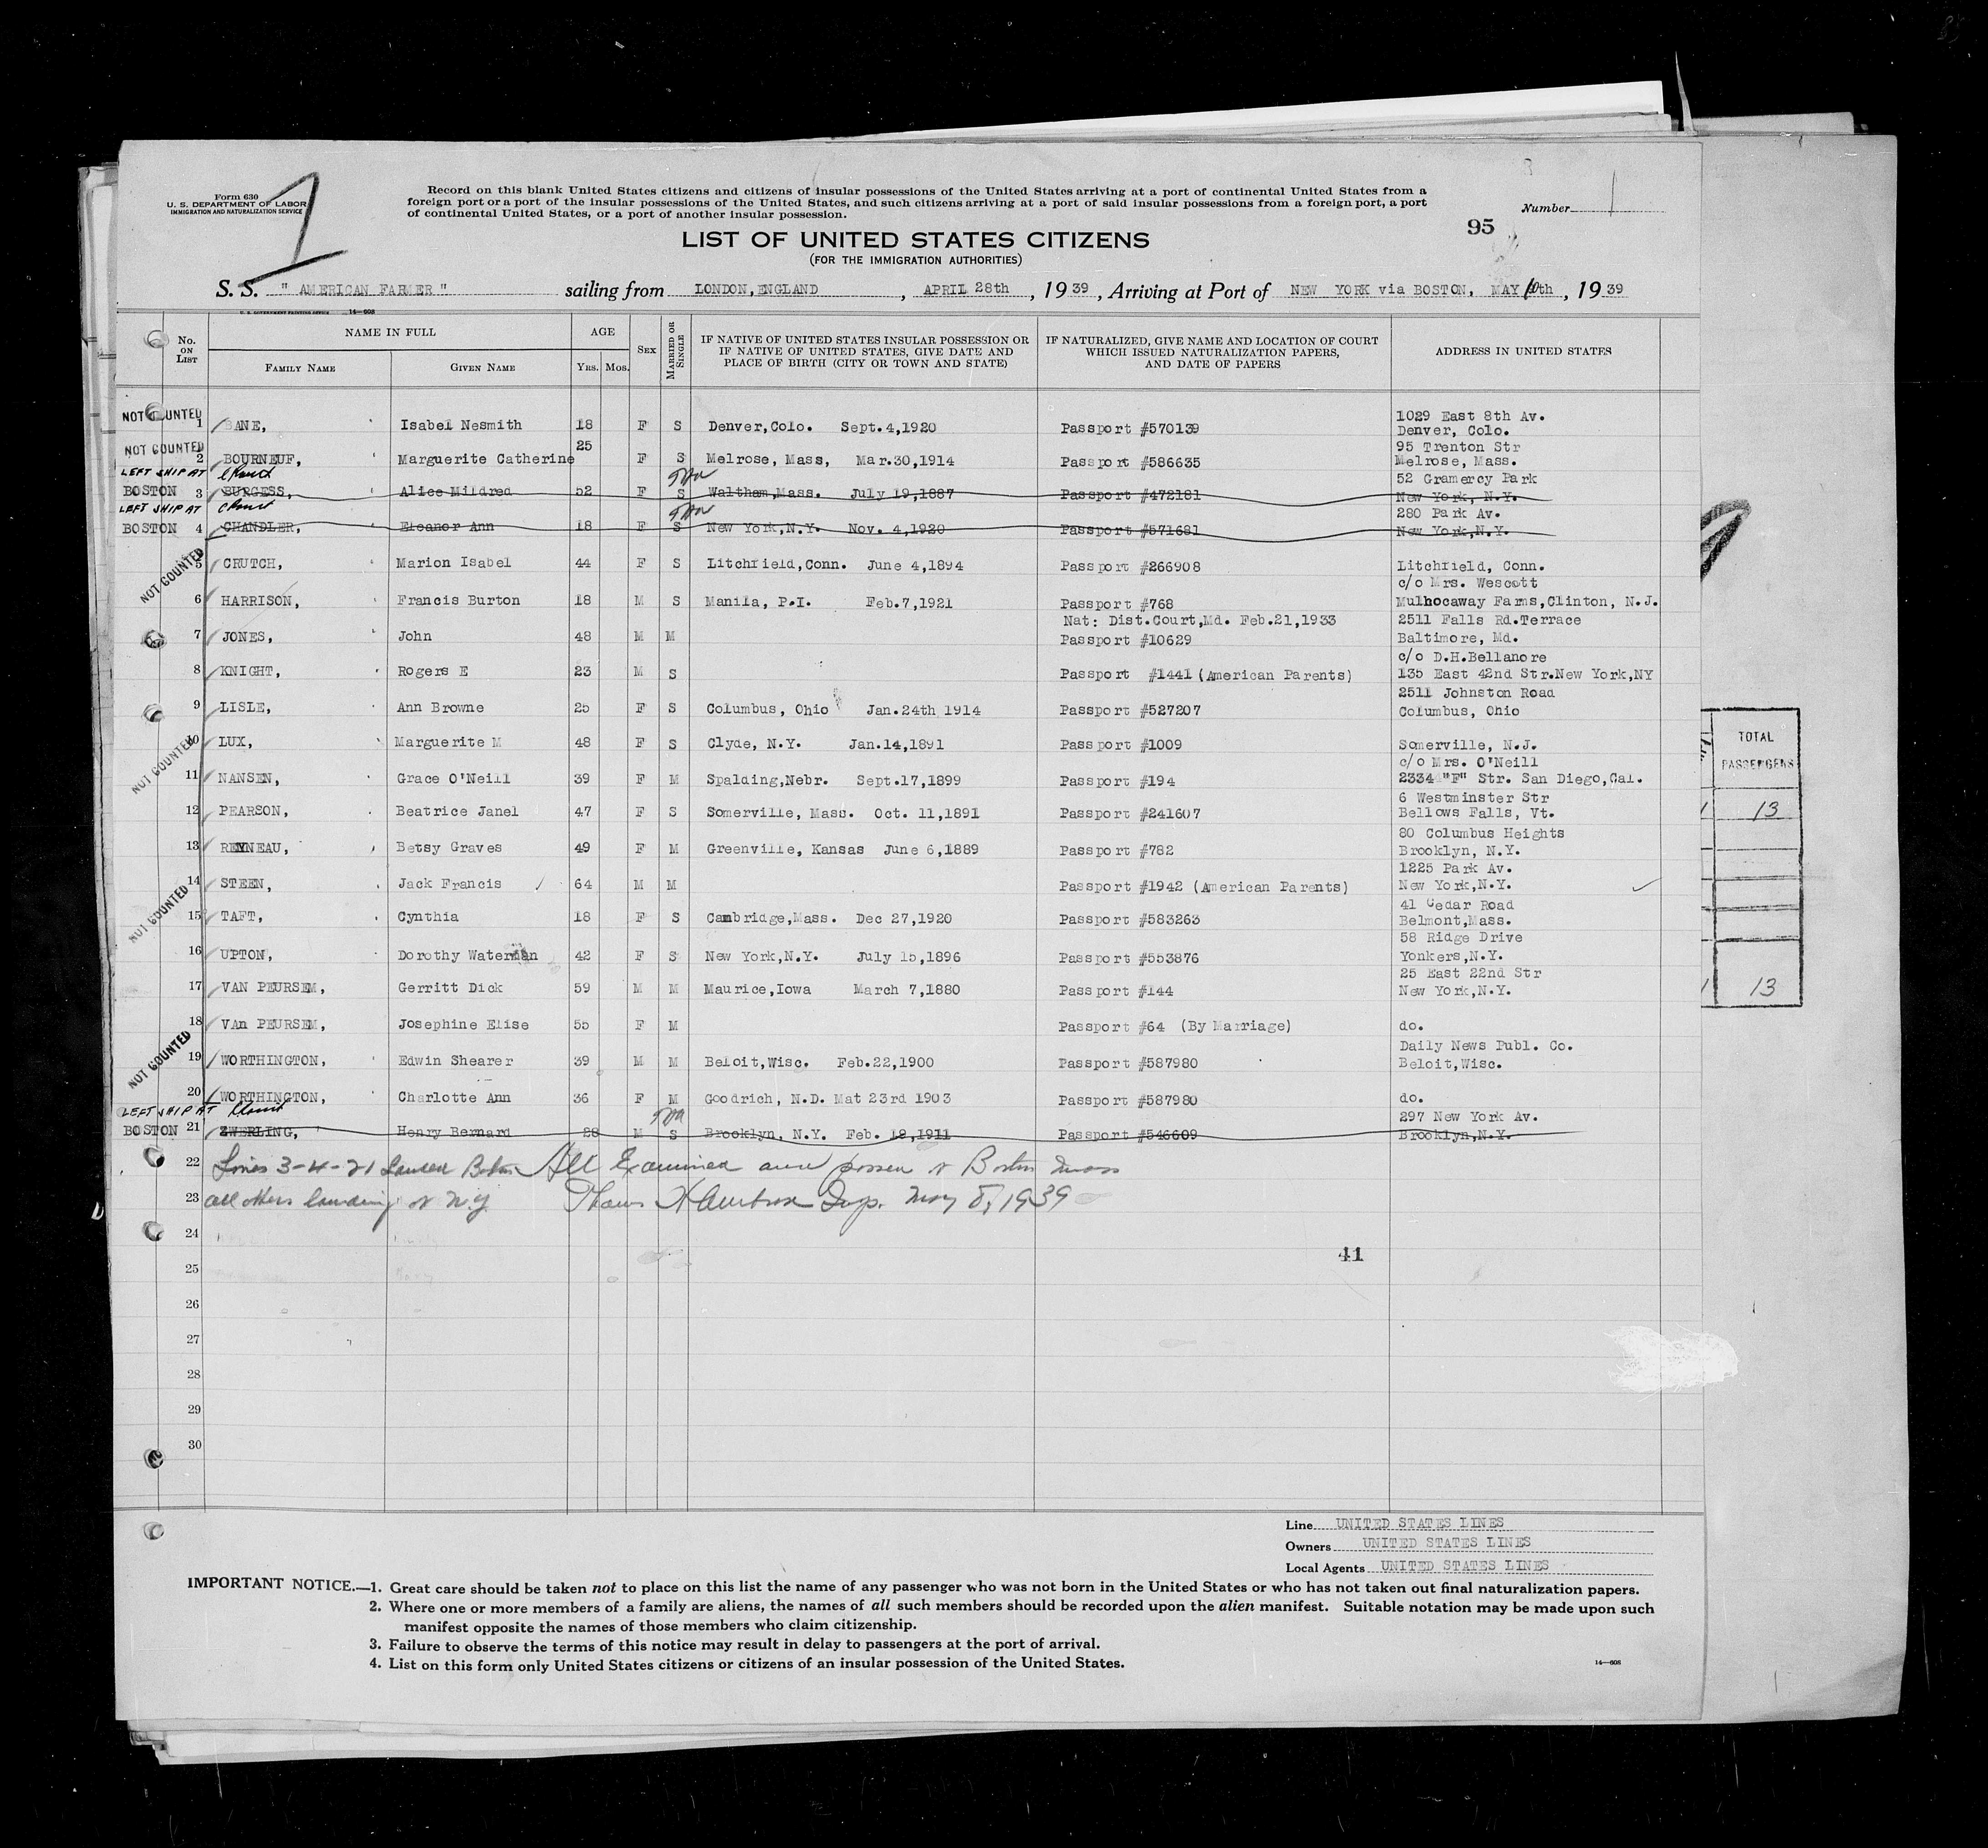 Form 630
U. S. DEPARTMENT OF LABOR
IMMIGRATION AND NATURALIZATION SERVICE
1
Record on this blank United States citizens and citizens of insular possessions of the United States arriving at a port of continental United States from a
foreign port or a port of the insular possessions of the United States, and such citizens arriving at a port of said insular possessions from a foreign port, a port
of continental United States, or a port of another insular possession.
Number 1
95
LIST OF UNITED STATES CITIZENS
(FOR THE IMMIGRATION AUTHORITIES)
S. S. " AMERICAN FARMER " sailing from LONDON,ENGLAND , APRIL 28th , 19 39 , Arriving at Port of NEW YORK via BOSTON, MAY 10th , 19 39
U. S. GOVERNMENT PRINTING OFFICE 14—608
No. ON LIST NAME IN FULL AGE SEX MARRIED OR SINGLE IF NATIVE OF UNITED STATES INSULAR POSSESSION OR IF NATIVE OF UNITED STATES, GIVE DATE AND PLACE OF BIRTH (CITY OR TOWN AND STATE) IF NATURALIZED, GIVE NAME AND LOCATION OF COURT WHICH ISSUED NATURALIZATION PAPERS, AND DATE OF PAPERS ADDRESS IN UNITED STATES
FAMILY NAME GIVEN NAME YRS. MOS.
NOT COUNTED 1029 East 8th Av.
1 BANE, Isabel Nesmith 18 F S Denver,Colo. Sept.4,1920 Passport #570139 Denver, Colo.
NOT COUNTED 95 Trenton Str
2 BOURNEUF, Marguerite Catherine 25 F S Melrose, Mass, Mar.30,1914 Passport #586635 Melrose, Mass.
LEFT SHIP AT 52 Gramercy Park
BOSTON 3 BURGESS, Alice Mildred 52 F S Waltham,Mass. July 19,1887 Passport #472181 New York, N.Y.
LEFT SHIP AT 280 Park Av.
BOSTON 4 CHANDLER, Eleanor Ann 18 F S New York,N.Y. Nov. 4,1920 Passport #571681 New York,N.Y.
NOT COUNTED
5 CRUTCH, Marion Isabel 44 F S Litchfield,Conn. June 4,1894 Passport #266908 Litchfield, Conn.
c/o Mrs. Wescott
6 HARRISON, Francis Burton 18 M S Manila, P.I. Feb.7,1921 Passport #768 Mulhocaway Farms,Clinton, N.J.
Nat: Dist.Court,Md. Feb.21,1933 2511 Falls Rd.Terrace
7 JONES, John 48 M M Passport #10629 Baltimore, Md.
c/o D.H.Bellanore
8 KNIGHT, Rogers E 23 M S Passport #1441 (American Parents) 135 East 42nd Str.New York,NY
2511 Johnston Road
9 LISLE, Ann Browne 25 F S Columbus, Ohio Jan.24th 1914 Passport #527207 Columbus, Ohio
NOT COUNTED
10 LUX, Marguerite M 48 F S Clyde, N.Y. Jan.14,1891 Passport #1009 Somerville, N.J.
c/o Mrs. O'Neill
11 NANSEN, Grace O'Neill 39 F M Spalding,Nebr. Sept.17,1899 Passport #194 2334 "F" Str. San Diego,Cal.
6 Westminster Str
12 PEARSON, Beatrice Janel 47 F S Somerville, Mass. Oct. 11,1891 Passport #241607 Bellows Falls, Vt.
80 Columbus Heights
13 REYNEAU, Betsy Graves 49 F M Greenville, Kansas June 6,1889 Passport #782 Brooklyn, N.Y.
1225 Park Av.
14 STEEN, Jack Francis 64 M M Passport #1942 (American Parents) New York,N.Y.
NOT COUNTED 41 Cedar Road
15 TAFT, Cynthia 18 F S Cambridge,Mass. Dec 27,1920 Passport #583263 Belmont,Mass.
58 Ridge Drive
16 UPTON, Dorothy Waterman 42 F S New York,N.Y. July 15,1896 Passport #553876 Yonkers,N.Y.
25 East 22nd Str
17 VAN PEURSEM, Gerritt Dick 59 M M Maurice,Iowa March 7,1880 Passport #144 New York,N.Y.
18 VAn PEURSEM, Josephine Elise 55 F M Passport #64 (By Marriage) do.
NOT COUNTED Daily News Publ. Co.
19 WORTHINGTON, Edwin Shearer 39 M M Beloit,Wisc. Feb.22,1900 Passport #587980 Beloit,Wisc.
20 WORTHINGTON, Charlotte Ann 36 F M Goodrich, N.D. Mat 23rd 1903 Passport #587980 do.
LEFT SHIP AT 297 New York Av.
BOSTON 21 ZWERLING, Henry Bernard 28 M S Brooklyn, N.Y. Feb. 18,1911 Passport #546609 Brooklyn,N.Y.
22 Lines 3-4-21 Landed Boston All Examined and passed at Boston Mass
23 all others landing at N.Y. Insp. May 8, 1939
24
41
25
26
27
28
29
30
TOTAL
PASSENGERS
13
13
Line UNITED STATES LINES
Owners UNITED STATES LINES
Local Agents UNITED STATES LINES
IMPORTANT NOTICE.—1. Great care should be taken not to place on this list the name of any passenger who was not born in the United States or who has not taken out final naturalization papers.
2. Where one or more members of a family are aliens, the names of all such members should be recorded upon the alien manifest. Suitable notation may be made upon such
manifest opposite the names of those members who claim citizenship.
3. Failure to observe the terms of this notice may result in delay to passengers at the port of arrival.
4. List on this form only United States citizens or citizens of an insular possession of the United States.
14—608